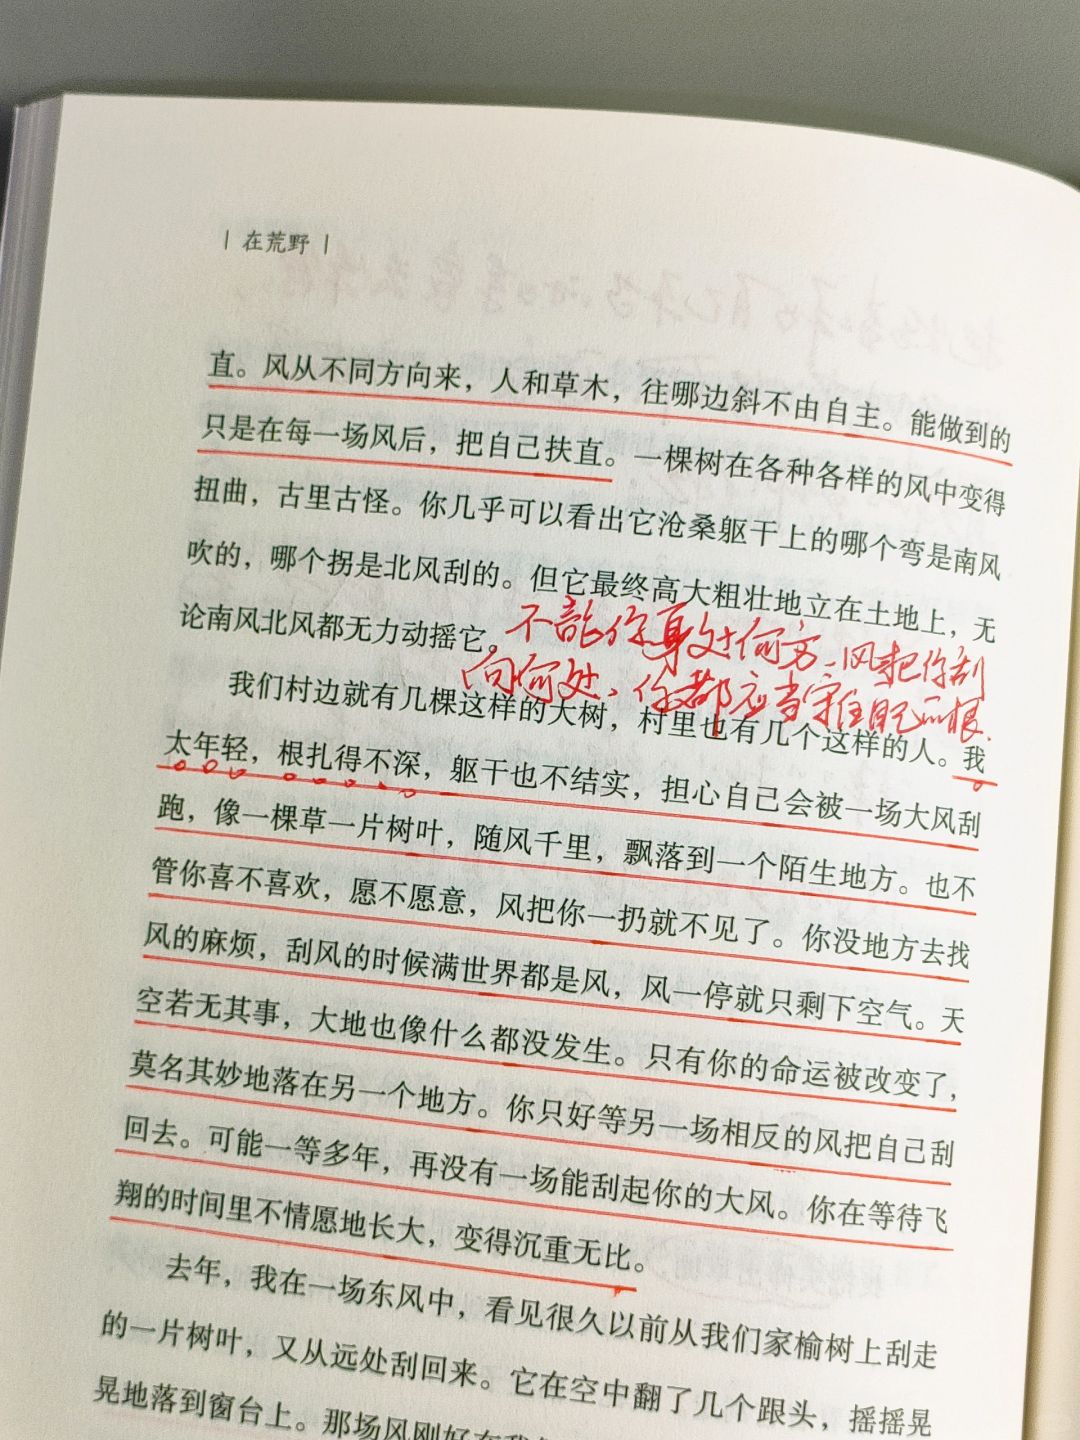 | 在荒野 |
直。风从不同方向来，人和草木，往哪边斜不由自主。能做到的
只是在每一场风后，把自己扶直。一棵树在各种各样的风中变得
扭曲，古里古怪。你几乎可以看出它沧桑躯干上的哪个弯是南风
吹的，哪个拐是北风刮的。但它最终高大粗壮地立在土地上，无
论南风北风都无力动摇它。
不论你身处何方、风把你刮
向何处、你都应当守住自己的根.
我们村边就有几棵这样的大树，村里也有几个这样的人。我
太年轻，根扎得不深，躯干也不结实，担心自己会被一场大风刮
跑，像一棵草一片树叶，随风千里，飘落到一个陌生地方。也不
管你喜不喜欢，愿不愿意，风把你一扔就不见了。你没地方去找
风的麻烦，刮风的时候满世界都是风，风一停就只剩下空气。天
空若无其事，大地也像什么都没发生。只有你的命运被改变了，
莫名其妙地落在另一个地方。你只好等另一场相反的风把自己刮
回去。可能一等多年，再没有一场能刮起你的大风。你在等待飞
翔的时间里不情愿地长大，变得沉重无比。
去年，我在一场东风中，看见很久以前从我们家榆树上刮走
的一片树叶，又从远处刮回来。它在空中翻了几个跟头，摇摇晃
晃地落到窗台上。那场风刚好在我